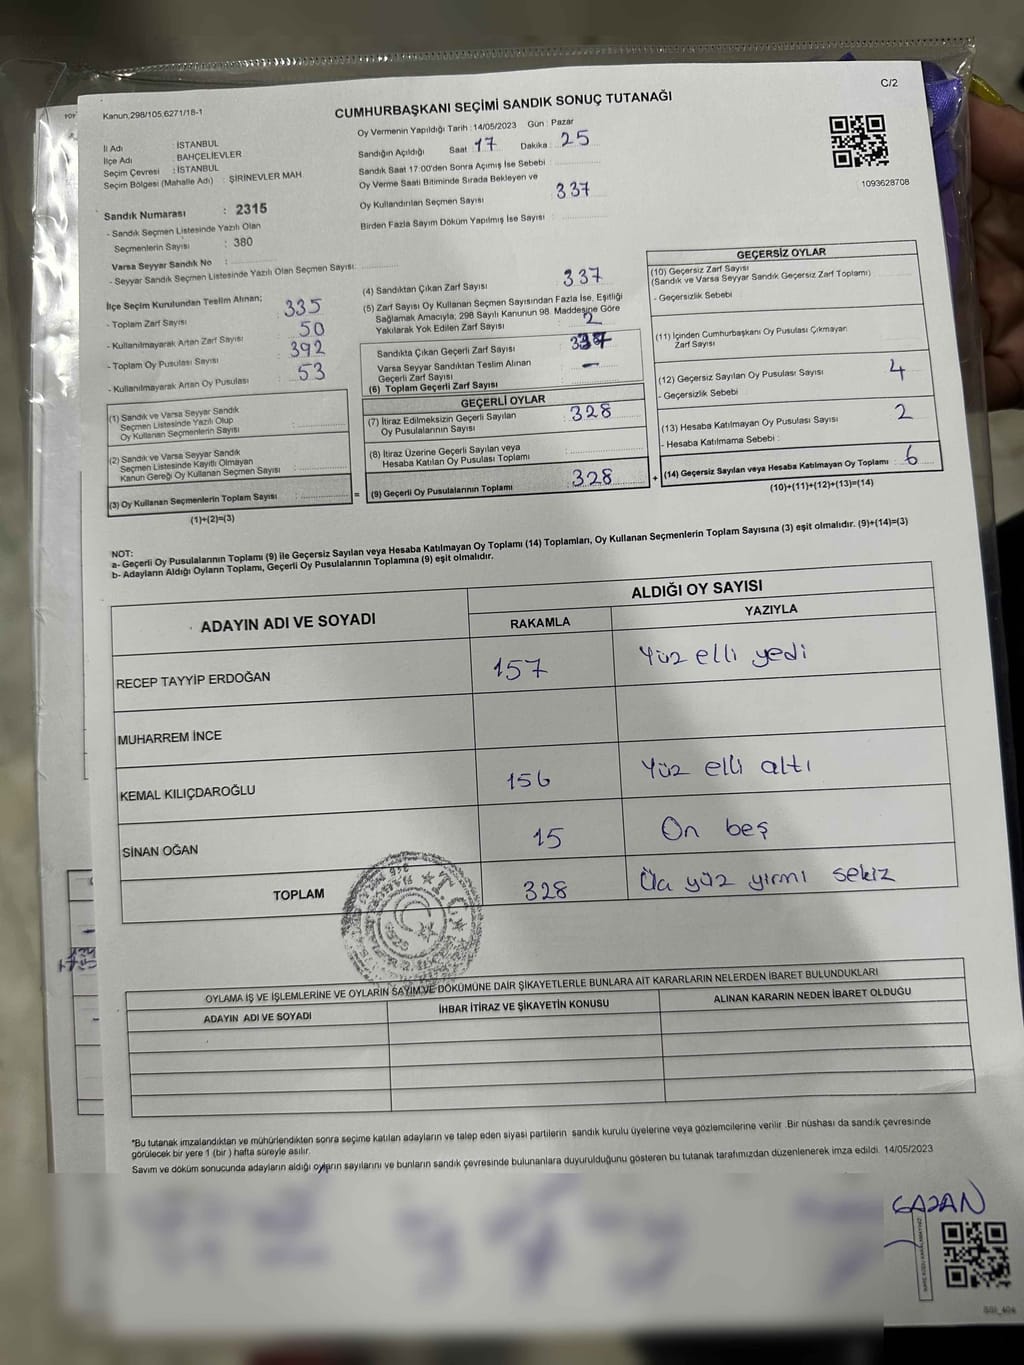 C/2
Kanun,298/105,6271/18-1
CUMHURBAŞKANI SEÇİMİ SANDIK SONUÇ TUTANAĞI
İl Adı : İSTANBUL
İlçe Adı : BAHÇELİEVLER
Seçim Çevresi : İSTANBUL
Seçim Bölgesi (Mahalle Adı) : ŞİRİNEVLER MAH.
Oy Vermenin Yapıldığı Tarih : 14/05/2023 Gün : Pazar
Sandığın Açıldığı Saat 17 Dakika : 25
Sandık Saat 17:00'den Sonra Açılmış İse Sebebi :
Oy Verme Saati Bitiminde Sırada Bekleyen ve
Oy Kullandırılan Seçmen Sayısı : 337
Birden Fazla Sayım Döküm Yapılmış İse Sayısı :
1093628708
Sandık Numarası : 2315
- Sandık Seçmen Listesinde Yazılı Olan
Seçmenlerin Sayısı : 380
Varsa Seyyar Sandık No :
- Seyyar Sandık Seçmen Listesinde Yazılı Olan Seçmen Sayısı:
İlçe Seçim Kurulundan Teslim Alınan;
- Toplam Zarf Sayısı : 335
- Kullanılmayarak Artan Zarf Sayısı : 50
- Toplam Oy Pusulası Sayısı : 392
- Kullanılmayarak Artan Oy Pusulası : 53
(1) Sandık ve Varsa Seyyar Sandık
Seçmen Listesinde Yazılı Olup
Oy Kullanan Seçmenlerin Sayısı :
(2) Sandık ve Varsa Seyyar Sandık
Seçmen Listesinde Kayıtlı Olmayan
Kanun Gereği Oy Kullanan Seçmen Sayısı :
(3) Oy Kullanan Seçmenlerin Toplam Sayısı :
(1)+(2)=(3)
=
(4) Sandıktan Çıkan Zarf Sayısı : 337
(5) Zarf Sayısı Oy Kullanan Seçmen Sayısından Fazla İse, Eşitliği
Sağlamak Amacıyla; 298 Sayılı Kanunun 98. Maddesine Göre
Yakılarak Yok Edilen Zarf Sayısı : 2
Sandıkta Çıkan Geçerli Zarf Sayısı :
Varsa Seyyar Sandıktan Teslim Alınan
Geçerli Zarf Sayısı : -
(6) Toplam Geçerli Zarf Sayısı :
GEÇERLİ OYLAR
(7) İtiraz Edilmeksizin Geçerli Sayılan
Oy Pusulalarının Sayısı : 328
(8) İtiraz Üzerine Geçerli Sayılan veya
Hesaba Katılan Oy Pusulası Toplamı :
(9) Geçerli Oy Pusulalarının Toplamı : 328
+
GEÇERSİZ OYLAR
(10) Geçersiz Zarf Sayısı
(Sandık ve Varsa Seyyar Sandık Geçersiz Zarf Toplamı)
- Geçersizlik Sebebi
(11) İçinden Cumhurbaşkanı Oy Pusulası Çıkmayan
Zarf Sayısı
(12) Geçersiz Sayılan Oy Pusulası Sayısı : 4
- Geçersizlik Sebebi
(13) Hesaba Katılmayan Oy Pusulası Sayısı : 2
- Hesaba Katılmama Sebebi :
(14) Geçersiz Sayılan veya Hesaba Katılmayan Oy Toplamı : 6
(10)+(11)+(12)+(13)=(14)
NOT:
a- Geçerli Oy Pusulalarının Toplamı (9) ile Geçersiz Sayılan veya Hesaba Katılmayan Oy Toplamı (14) Toplamları, Oy Kullanan Seçmenlerin Toplam Sayısına (3) eşit olmalıdır. (9)+(14)=(3)
b- Adayların Aldığı Oyların Toplamı, Geçerli Oy Pusulalarının Toplamına (9) eşit olmalıdır.
ADAYIN ADI VE SOYADI ALDIĞI OY SAYISI
RAKAMLA YAZIYLA
RECEP TAYYİP ERDOĞAN 157 Yüz elli yedi
MUHARREM İNCE
KEMAL KILIÇDAROĞLU 156 Yüz elli altı
SİNAN OĞAN 15 On beş
TOPLAM 328 Üç yüz yirmi sekiz
T.C.
OYLAMA İŞ VE İŞLEMLERİNE VE OYLARIN SAYIM VE DÖKÜMÜNE DAİR ŞİKAYETLERLE BUNLARA AİT KARARLARIN NELERDEN İBARET BULUNDUKLARI
ADAYIN ADI VE SOYADI İHBAR İTİRAZ VE ŞİKAYETİN KONUSU ALINAN KARARIN NEDEN İBARET OLDUĞU
*Bu tutanak imzalandıktan ve mühürlendikten sonra seçime katılan adayların ve talep eden siyasi partilerin sandık kurulu üyelerine veya gözlemcilerine verilir .Bir nüshası da sandık çevresinde
görülecek bir yere 1 (bir ) hafta süreyle asılır.
Sayım ve döküm sonucunda adayların aldığı oyların sayılarını ve bunların sandık çevresinde bulunanlara duyurulduğunu gösteren bu tutanak tarafımızdan düzenlenerek imza edildi. 14/05/2023